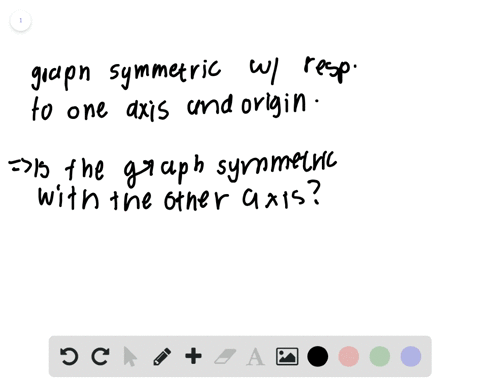 1
graph symmetric w/ resp.
to one axis and origin.
=> Is the graph symmetric
with the other axis?
A